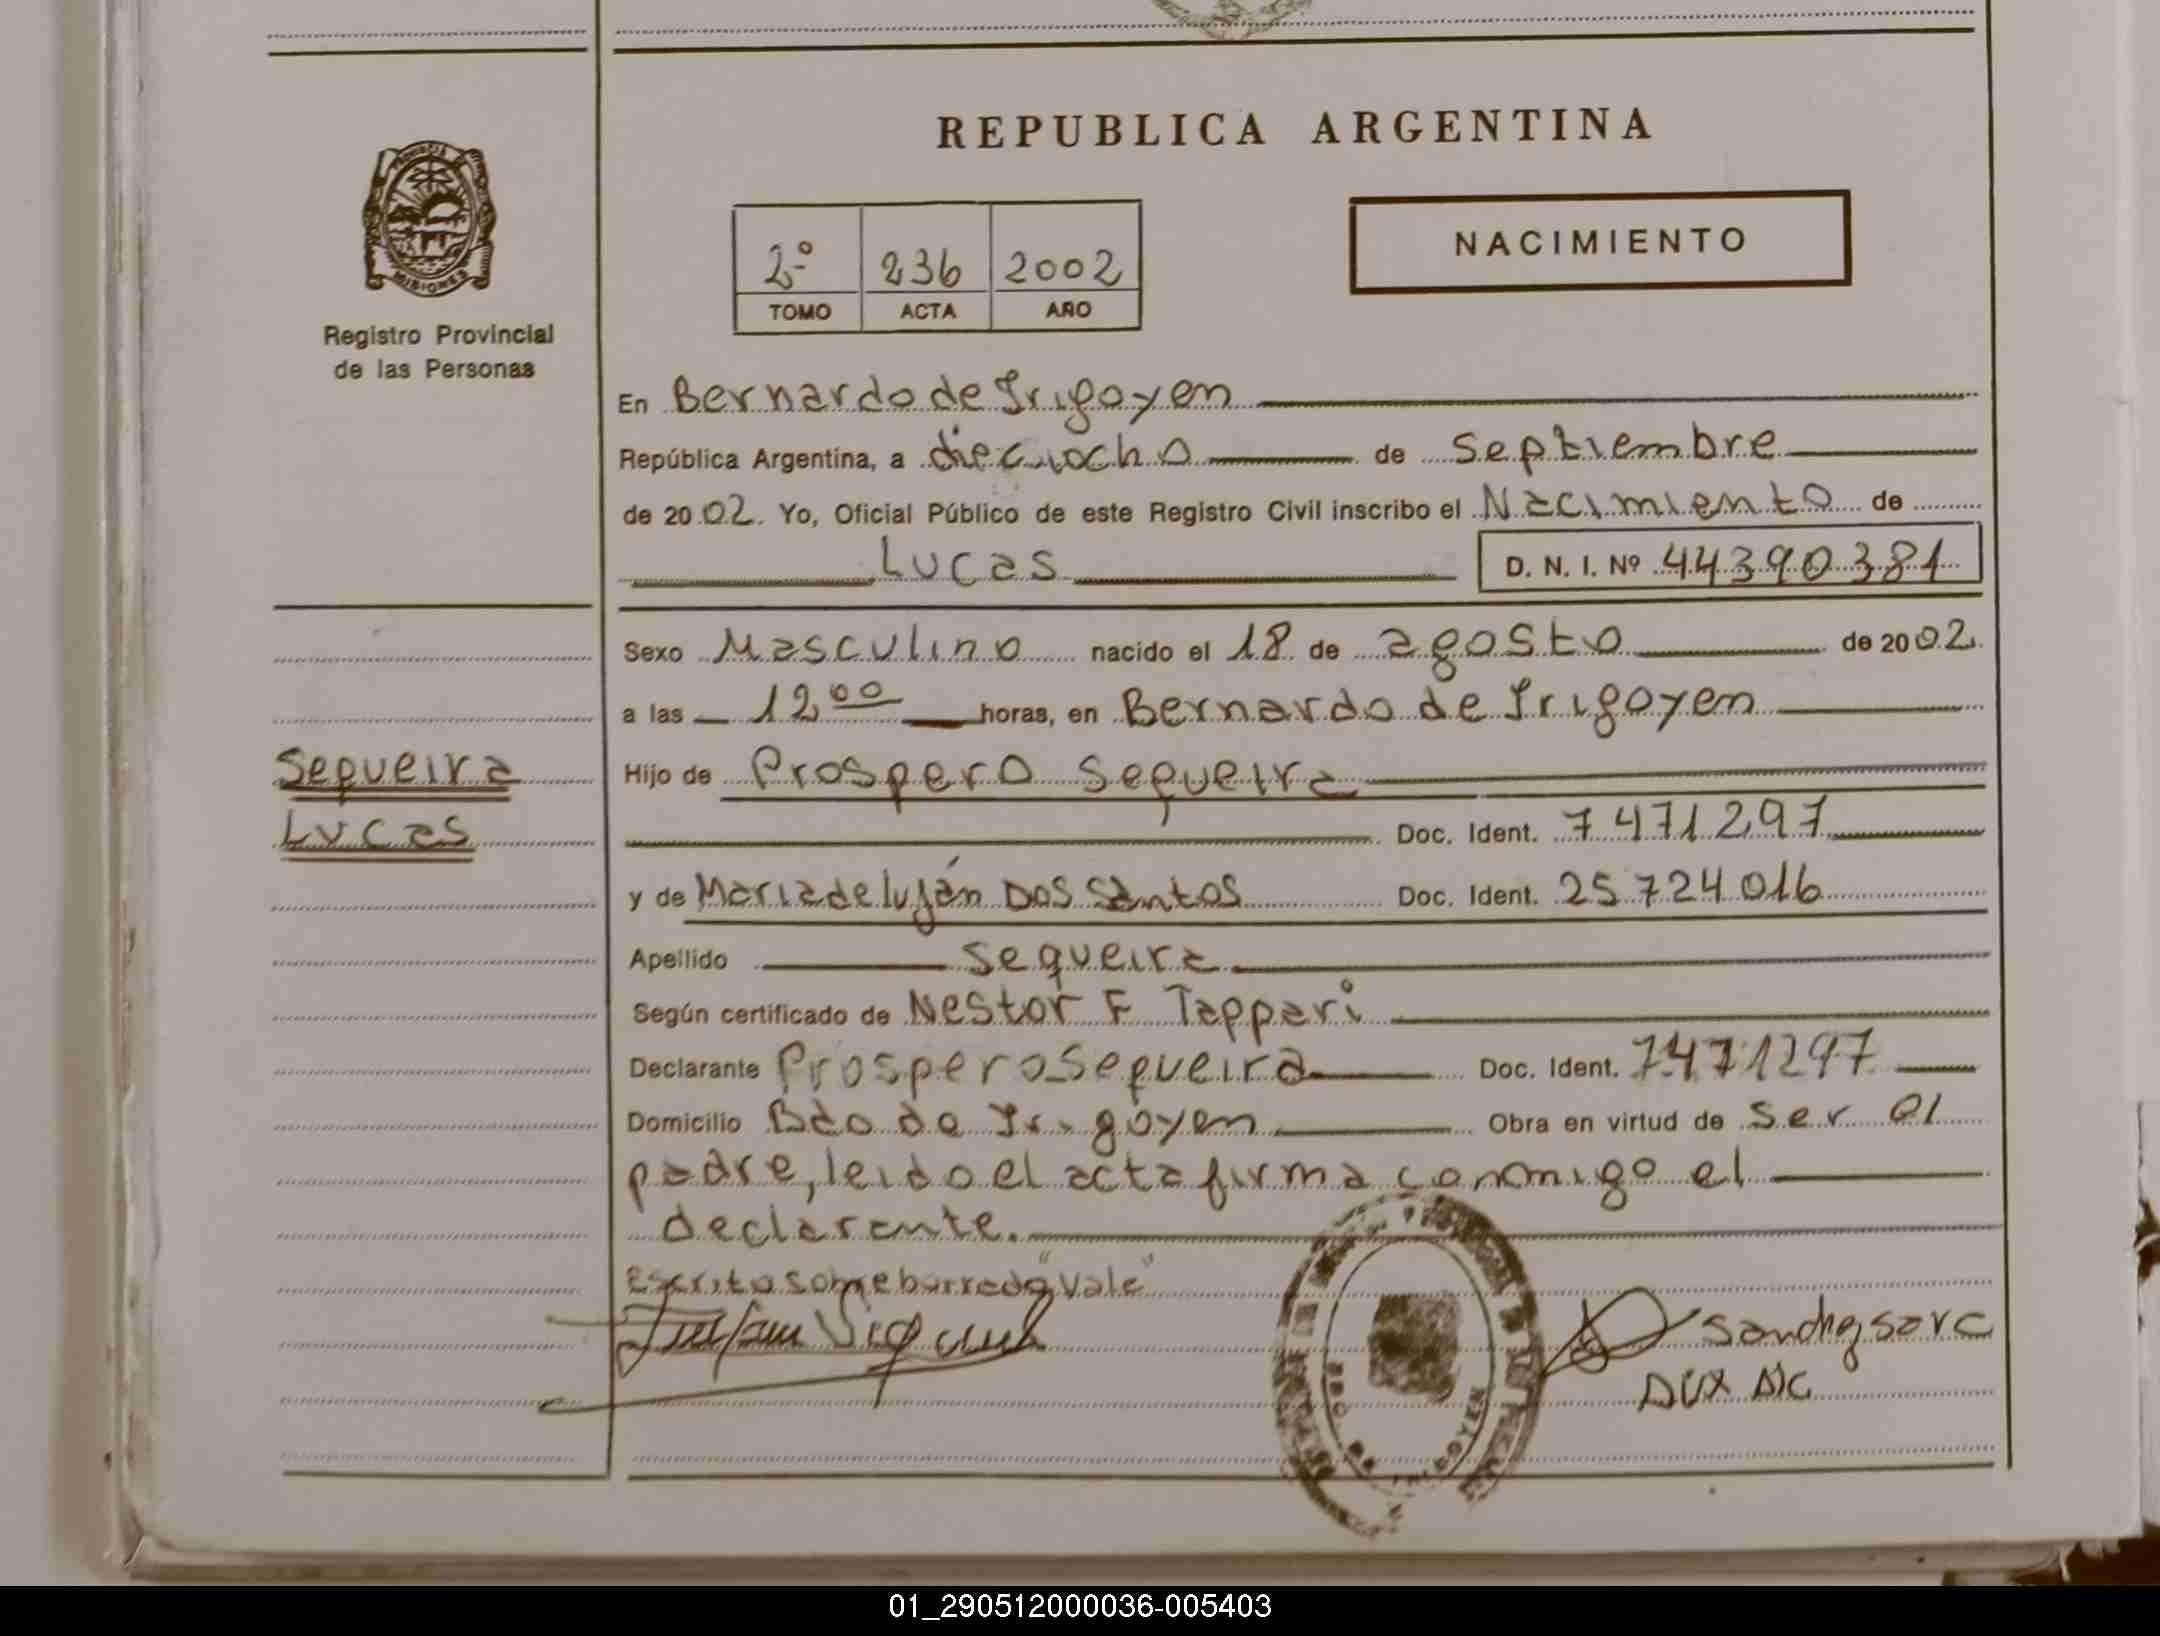 REPUBLICA ARGENTINA
PROVINCIA
MISIONES
Registro Provincial
de las Personas
2º 236 2002
TOMO ACTA AÑO
NACIMIENTO
En Bernardo de Irigoyen
República Argentina, a dieciocho de Septiembre
de 2002. Yo, Oficial Público de este Registro Civil inscribo el Nacimiento de
Lucas D. N. I. Nº 44390381
Sexo Masculino nacido el 18 de agosto de 2002.
a las 12 00 horas, en Bernardo de Irigoyen
Sequeira
Lucas
Hijo de Prospero Sequeira
Doc. Ident. 7471297
y de Maria de luján Dos Santos Doc. Ident. 25.724.016
Apellido Sequeira
Según certificado de Nestor F Tappari
Declarante Prospero Sequeira Doc. Ident. 7471297
Domicilio Bdo de Irigoyen Obra en virtud de ser el
padre, leido el acta firma conmigo el
declarante.
Escrito sobre borrado "Vale"
BDO. DE IRIGOYEN
01_290512000036-005403